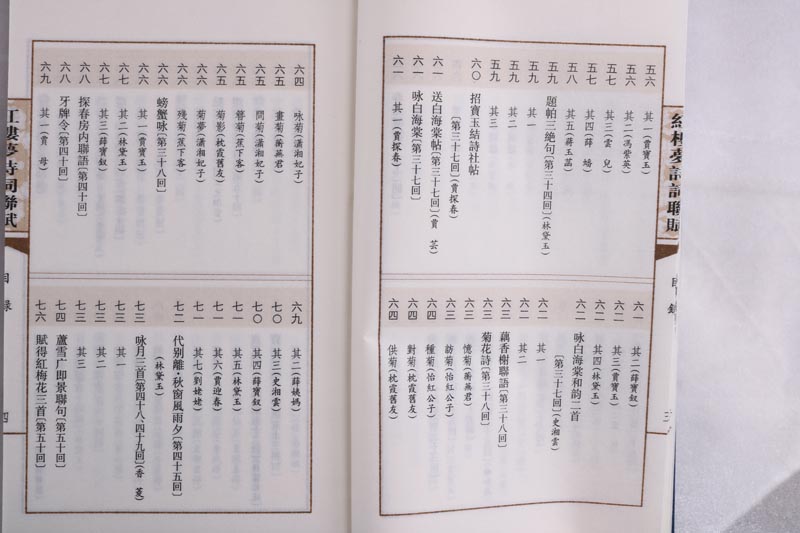 紅樓夢詩詞聯賦
目錄
三
五六 其一(賈寶玉)
五六 其二(馮紫英)
五七 其三(雲兒)
五七 其四(薛蟠)
五八 其五(蔣玉菡)
五九 題帕三絕句[第三十四回](林黛玉)
五九 其一
五九 其二
五九 其三
六〇 招寶玉結詩社帖
[第三十七回](賈探春)
六一 送白海棠帖[第三十七回](賈芸)
六一 咏白海棠[第三十七回]
六一 其一(賈探春)
六一 其二(薛寶釵)
六二 其三(賈寶玉)
六二 其四(林黛玉)
六二 咏白海棠和韵二首
[第三十七回](史湘雲)
六二 其一
六二 其二
六三 藕香榭聯語[第三十八回]
六三 菊花詩[第三十八回]
六三 憶菊(蘅蕪君)
六三 訪菊(怡紅公子)
六四 種菊(怡紅公子)
六四 對菊(枕霞舊友)
六四 供菊(枕霞舊友)
六四 咏菊(瀟湘妃子)
六五 畫菊(蘅蕪君)
六五 問菊(瀟湘妃子)
六五 簪菊(蕉下客)
六五 菊影(枕霞舊友)
六六 菊夢(瀟湘妃子)
六六 殘菊(蕉下客)
六六 螃蟹咏[第三十八回]
六六 其一(賈寶玉)
六七 其二(林黛玉)
六七 其三(薛寶釵)
六八 探春房内聯語[第四十回]
六八 牙牌令[第四十回]
六九 其一(賈母)
六九 其二(薛姨媽)
七〇 其三(史湘雲)
七〇 其四(薛寶釵)
七一 其五(林黛玉)
七一 其六(賈迎春)
七一 其七(劉姥姥)
七二 代别離·秋窗風雨夕[第四十五回]
(林黛玉)
七三 咏月三首[第四十八-四十九回](香菱)
七三 其一
七三 其二
七三 其三
七四 蘆雪广即景聯句[第五十回]
七六 賦得紅梅花三首[第五十回]
紅樓夢詩詞聯賦
目錄
四